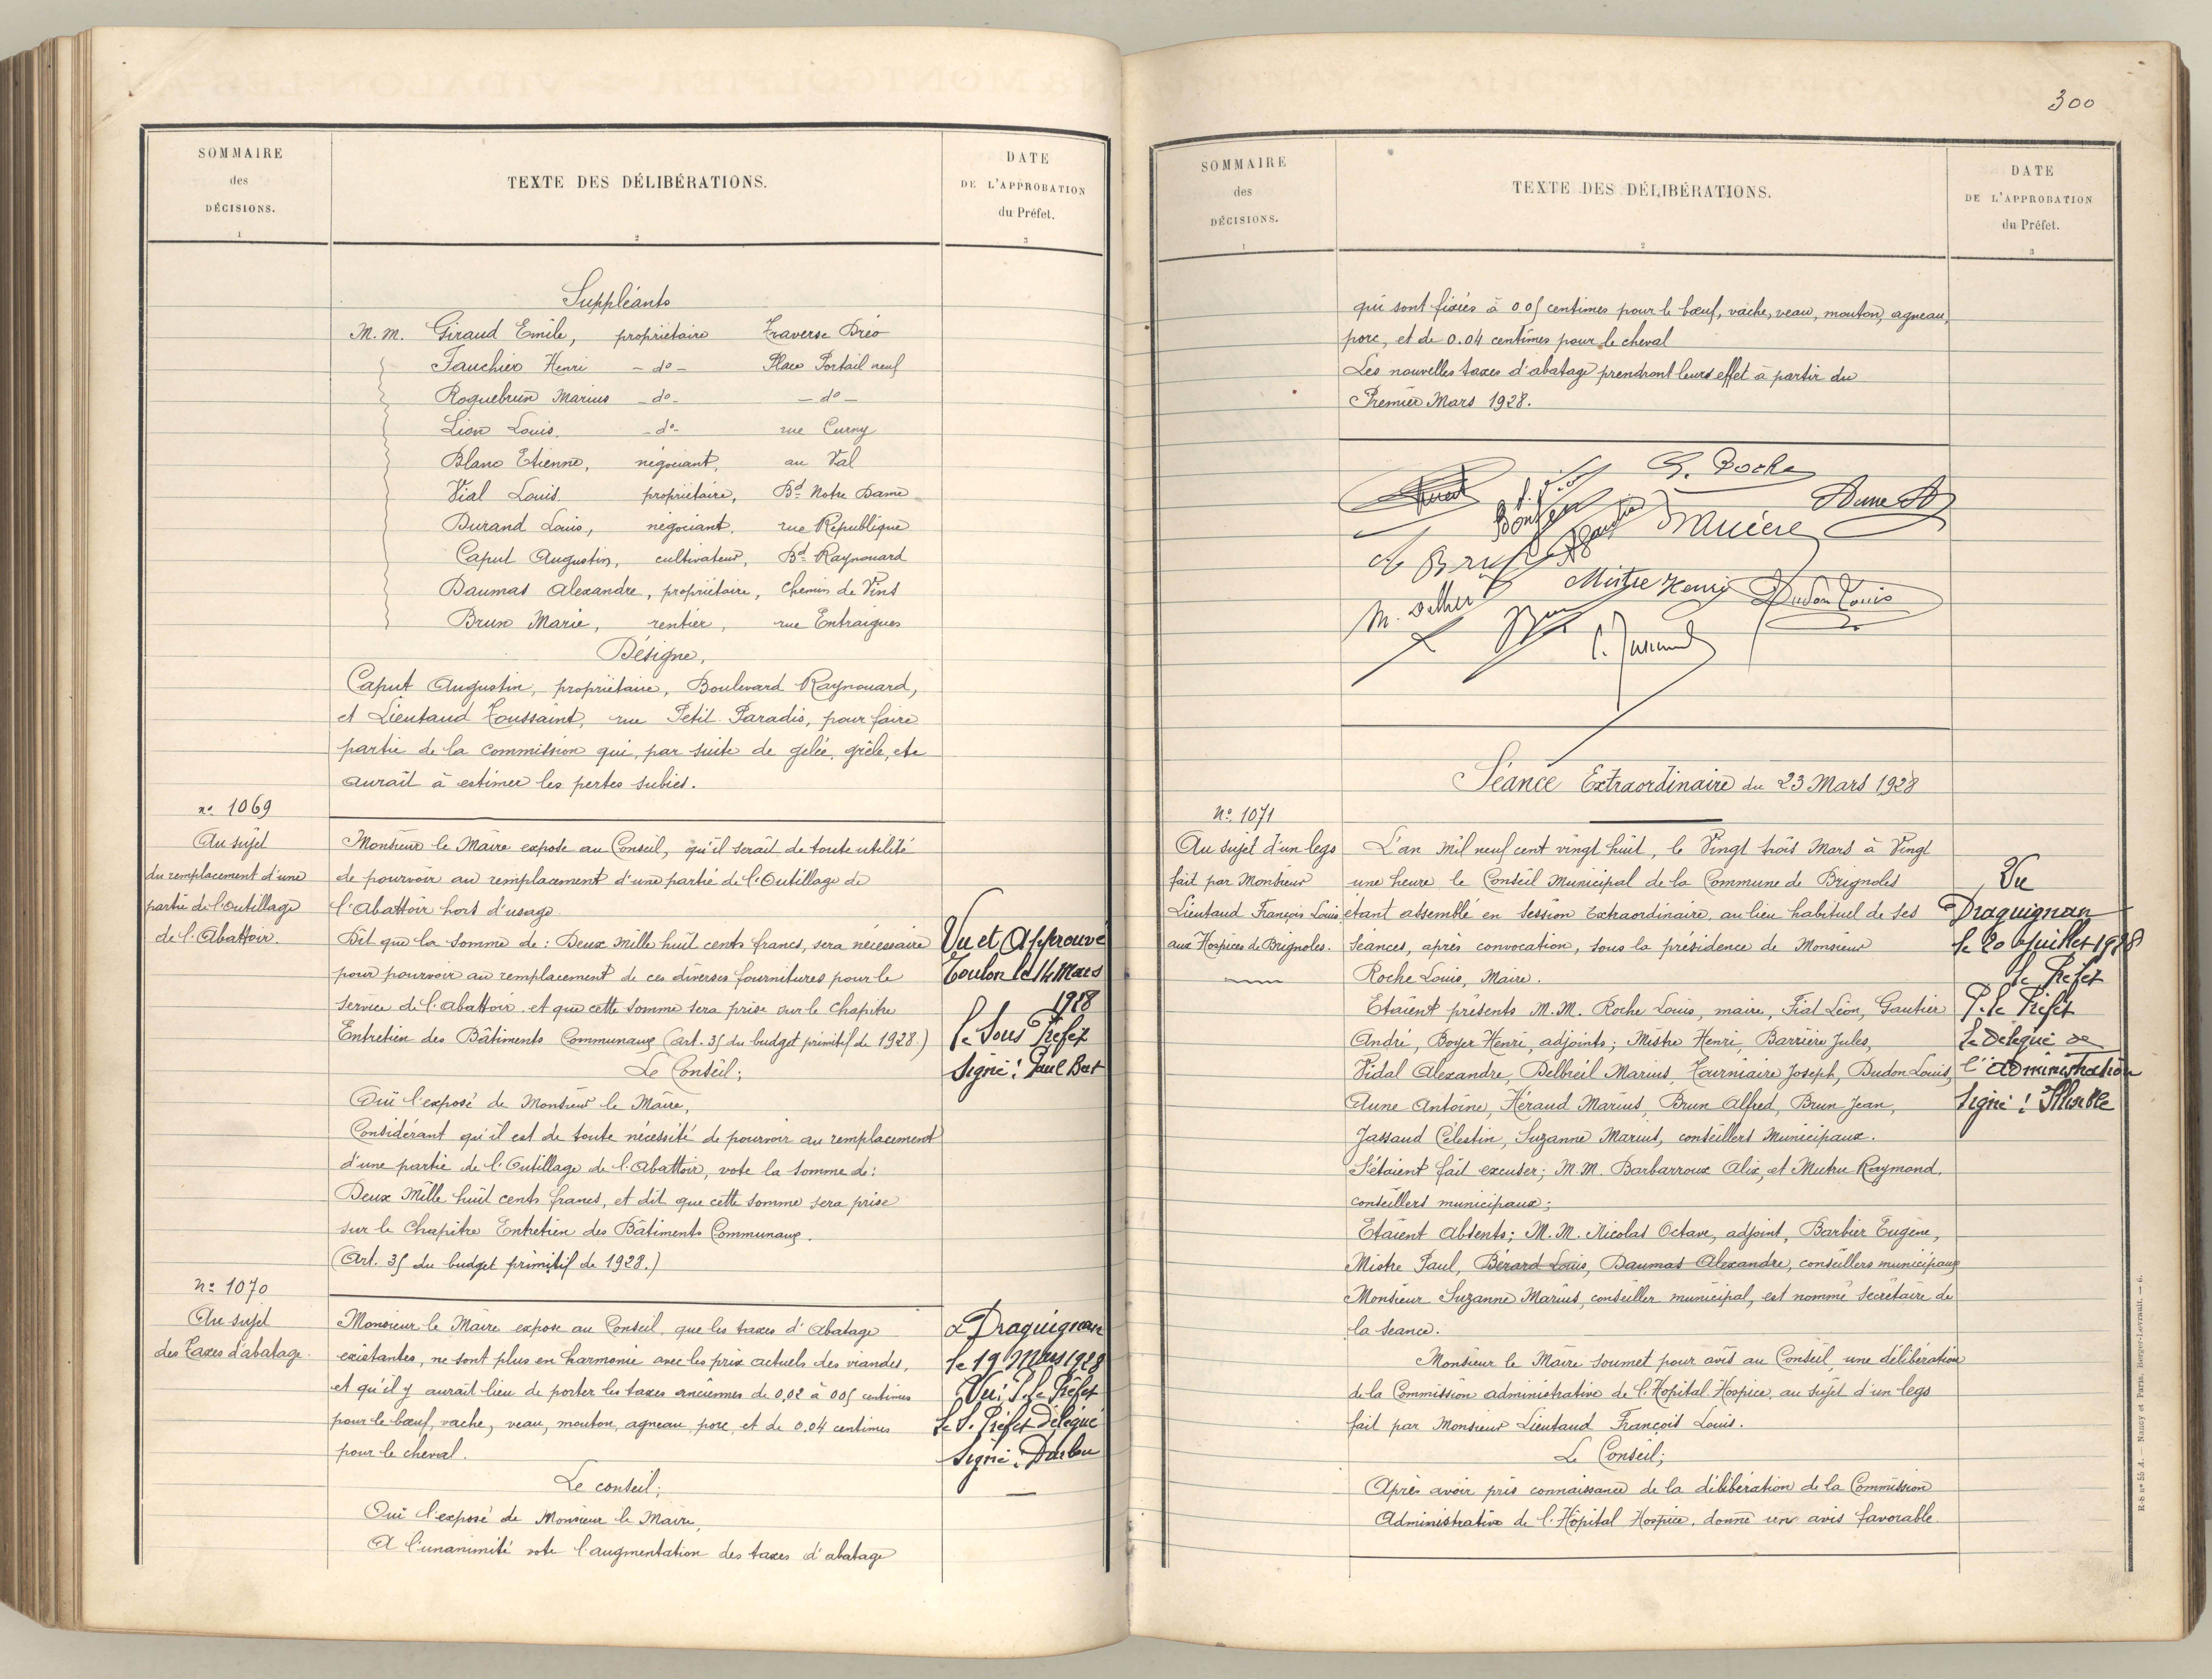 SOMMAIRE
des
DÉCISIONS.
1
TEXTE DES DÉLIBÉRATIONS.
2
DATE
DE L'APPROBATION
du Préfet.
3
Suppléants
M.M. Giraud Emile, propriétaire Traverse Dréo
Fauchier Henri - do - Place Portail neuf
Roquebrun Marius - do - - do -
Lion Louis, - do - rue Curny
Blanc Etienne, négociant, au Val
Vial Louis, propriétaire, Bd Notre Dame
Durand Louis, négociant, rue République
Caput Augustin, cultivateur, Bd Raynouard
Daumas Alexandre, propriétaire, Chemin de Vins
Brun Marie, rentier, rue Entraigues
Désigne,
Caput Augustin, propriétaire, Boulevard Raynouard,
et Lieutaud Toussaint, rue Petit Paradis, pour faire
partie de la commission qui, par suite de gelée, grêle, etc
aurait à estimer les pertes subies.
no 1069
Au sujet
du remplacement d'une
partie de l'outillage
de l'Abattoir.
Monsieur le Maire expose au Conseil, qu'il serait de toute utilité
de pourvoir au remplacement d'une partie de l'Outillage de
l'Abattoir hors d'usage.
Dit que la somme de : Deux mille huit cents francs, sera nécessaire
pour pourvoir au remplacement de ces diverses fournitures pour le
service de l'abattoir et que cette somme sera prise sur le Chapitre
Entretien des Bâtiments Communaux (art. 35 du budget primitif de 1928.)
Le Conseil;
Ouï l'exposé de Monsieur le Maire,
Considérant qu'il est de toute nécessité de pourvoir au remplacement
d'une partie de l'Outillage de l'Abattoir, vote la somme de :
Deux Mille huit cents francs, et dit que cette somme sera prise
sur le Chapitre Entretien des Bâtiments Communaux.
(Art. 35 du budget primitif de 1928.)
Vu et Approuvé
Toulon le 14 Mars
1928
Le Sous Préfet
Signé : Paul Bert
no 1070
Au sujet
des Taxes d'abatage.
Monsieur le Maire expose au Conseil, que les taxes d'Abatage
existantes, ne sont plus en harmonie avec les prix actuels des viandes,
et qu'il y aurait lieu de porter les taxes anciennes de 0,02 à 005 centimes
pour le bœuf, vache, veau, mouton, agneau, porc, et de 0.04 centimes
pour le cheval.
Le conseil;
Ouï l'exposé de Monsieur le Maire,
A l'unanimité vote l'augmentation des taxes d'abatage
Draguignan
le 19 Mars 1928
Vu, P. le Préfet
Le S. Préfet délégué
Signé :
300
SOMMAIRE
des
DÉCISIONS.
1
TEXTE DES DÉLIBÉRATIONS.
2
DATE
DE L'APPROBATION
du Préfet.
3
qui sont fixées à 0.05 centimes pour le bœuf, vache, veau, mouton, agneau,
porc, et de 0.04 centimes pour le cheval
Les nouvelles taxes d'abatage prendront leurs effet à partir du
Premier Mars 1928.
Roche
Aune
Mistre Henri Dudon Louis
Séance Extraordinaire du 23 Mars 1928
No 1071
Au sujet d'un legs
fait par Monsieur
Lieutaud François Louis
aux Hospices de Brignoles.
L'an Mil neuf cent vingt huit, le Vingt trois Mars à Vingt
une heure le Conseil Municipal de la Commune de Brignoles
étant assemblé en Session Extraordinaire, au lieu habituel de ses
séances, après convocation, sous la présidence de Monsieur
Roche Louis, Maire.
Etaient présents M.M. Roche Louis, maire, Fiat Léon, Gautier
André, Boyer Henri, adjoints; Mistre Henri, Barrière Jules,
Vidal Alexandre, Delbreil Marius, Tourniaire Joseph, Dudon Louis,
Aune Antoine, Héraud Marius, Brun Alfred, Brun Jean,
Jassaud Célestin, Suzanne Marius, conseillers Municipaux.
S'étaient fait excuser; M.M. Barbarroux Alix, et Mutru Raymond.
conseillers municipaux;
Etaient Absents; M.M. Nicolas Octave, adjoint, Barbier Eugène,
Mistre Paul, Bérard Louis, Daumas Alexandre, conseillers municipaux
Monsieur Suzanne Marius, conseiller municipal, est nommé Secrétaire de
la seance.
Monsieur le Maire soumet pour avis au Conseil, une délibération
de la Commission administrative de l'Hopital Hospice, au sujet d'un legs
fait par Monsieur Lieutaud François Louis.
Le Conseil;
Après avoir pris connaissance de la délibération de la Commission
Administrative de l'Hôpital Hospice, donne un avis favorable.
Vu
Draguignan
le 20 Juillet 1928
le Prefet
P. le Préfet
Le délégué de
l'administration
Signé :
R-S no 55 A. Nancy et Paris, Berger-Levrault. — 6.